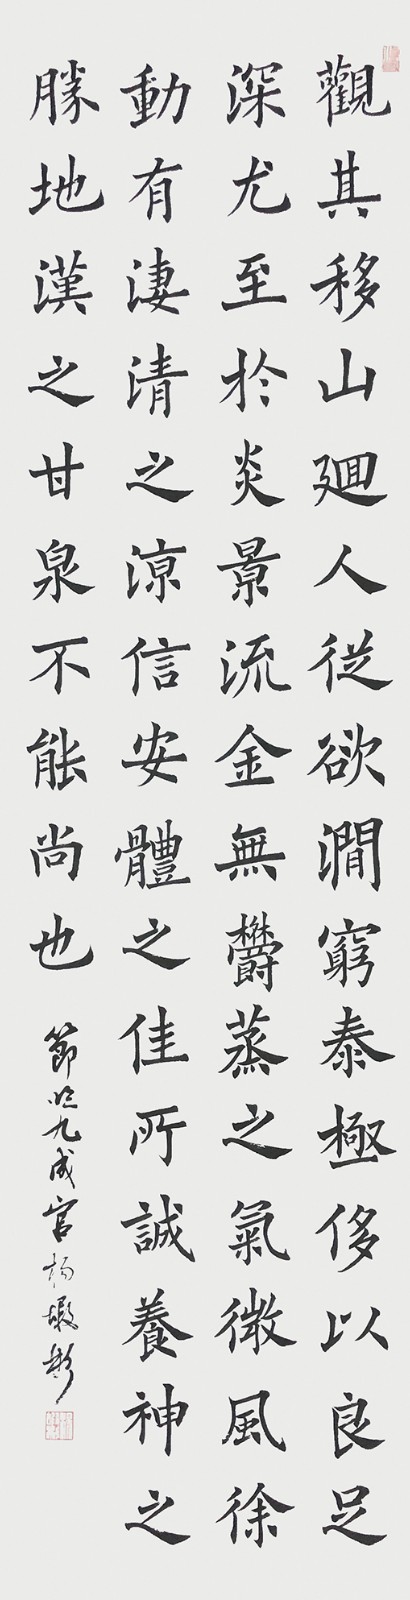 觀其移山廻人從欲澗窮泰極侈以良足
深尤至於炎景流金無鬱蒸之氣微風徐
動有淒清之涼信安體之佳所誠養神之
勝地漢之甘泉不能尚也
節臨九成宮楊